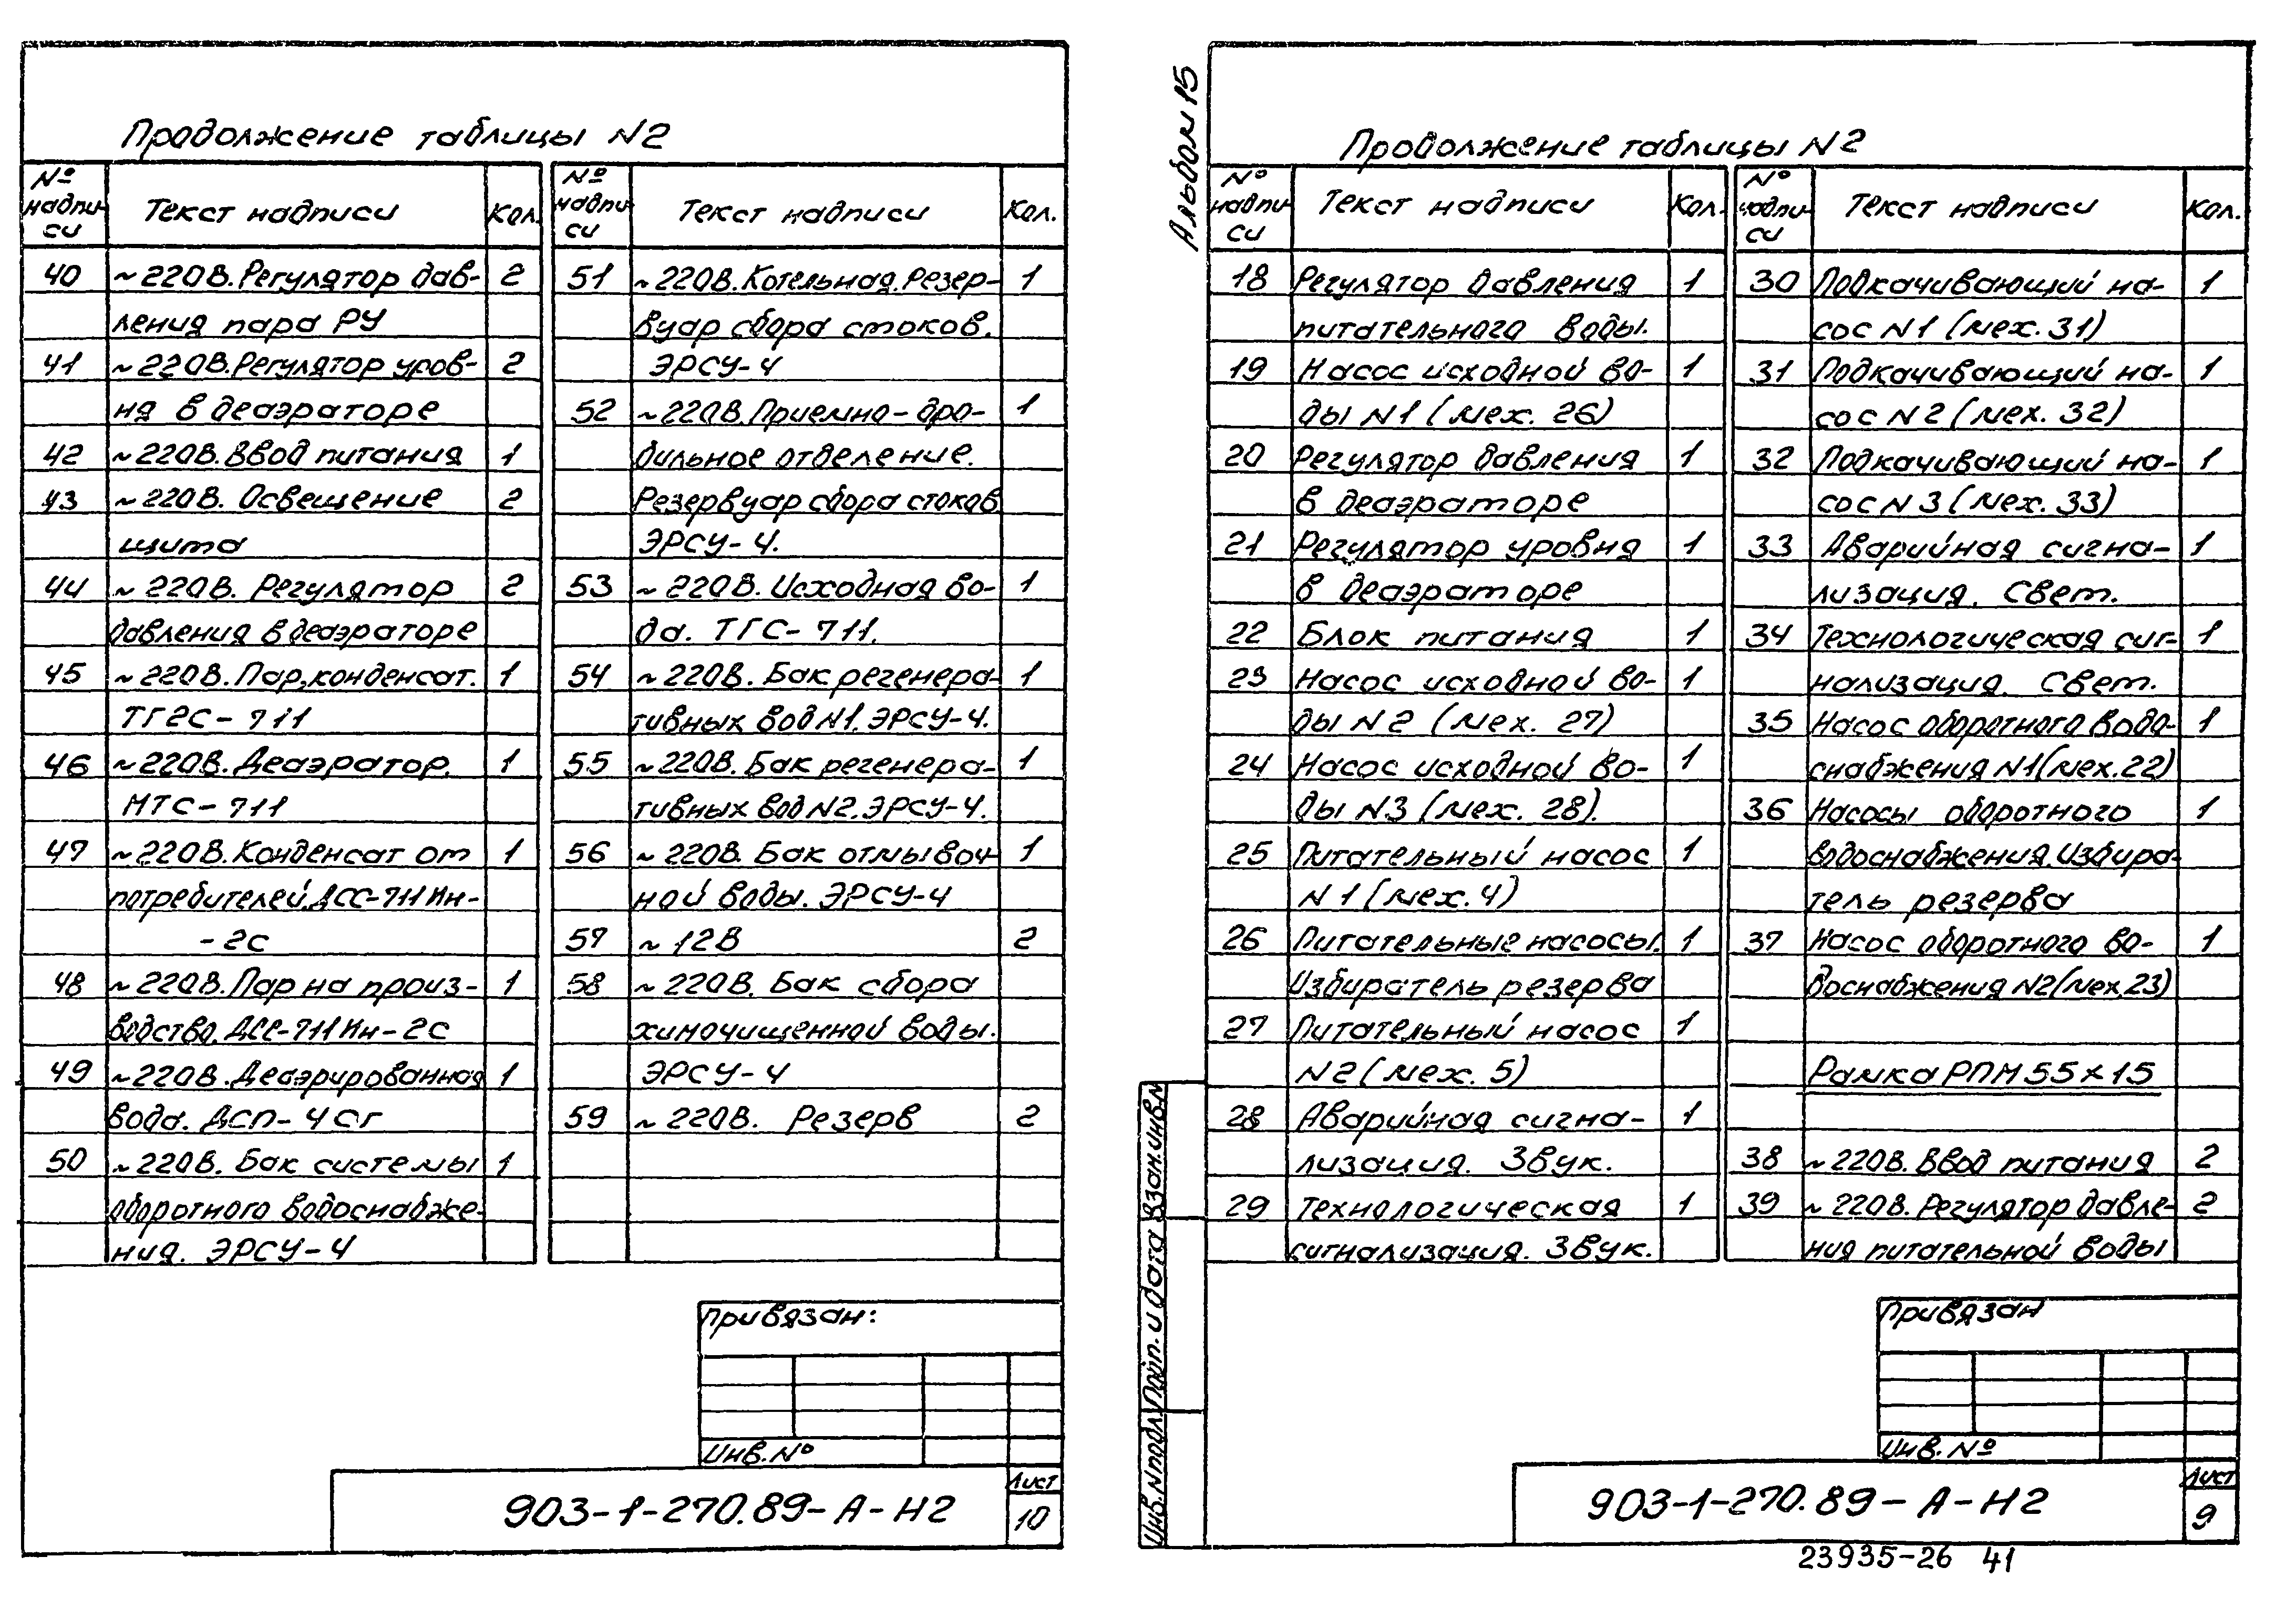 Продолжение таблицы N2
№ надпи- си Текст надписи Кол.
40 ~220В. Регулятор дав- 2
ления пара РУ
41 ~220В. Регулятор уров- 2
ня в деаэраторе
42 ~220В. Ввод питания 1
43 ~220В. Освещение 2
щита
44 ~220В. Регулятор 2
давления в деаэраторе
45 ~220В. Пар, конденсат. 1
ТГ2С-711
46 ~220В. Деаэратор. 1
МТС-711
47 ~220В. Конденсат от 1
потребителей. ДСС-711Ин-
-2с
48 ~220В. Пар на произ- 1
водство. ДСС-711Ин-2С
49 ~220В. Деаэрированная 1
вода. ДСП-4Сг
50 ~220В. Бак системы 1
оборотного водоснабже-
ния. ЭРСУ-4
№ надпи- си Текст надписи Кол.
51 ~220В. Котельная. Резер- 1
вуар сбора стоков.
ЭРСУ-4
52 ~220В. Приемно-дро- 1
бильное отделение.
Резервуар сбора стоков
ЭРСУ-4.
53 ~220В. Исходная во- 1
да. ТГС-711.
54 ~220В. Бак регенера- 1
тивных вод N1. ЭРСУ-4.
55 ~220В. Бак регенера- 1
тивных вод N2. ЭРСУ-4.
56 ~220В. Бак отмывоч- 1
ной воды. ЭРСУ-4
57 ~12В 2
58 ~220В. Бак сбора
химочищенной воды.
ЭРСУ-4
59 ~220В. Резерв 2
Привязан:
Инв. №
903-1-270.89-А-Н2
Лист
10
Альбом 15
Продолжение таблицы N2
№ надпи- си Текст надписи Кол.
18 Регулятор давления 1
питательного воды.
19 Насос исходной во- 1
ды N1 (мех. 26)
20 Регулятор давления 1
в деаэраторе
21 Регулятор уровня 1
в деаэраторе
22 Блок питания 1
23 Насос исходной во- 1
ды N2 (мех. 27)
24 Насос исходной во- 1
ды N3 (мех. 28).
25 Питательный насос 1
N1 (мех. 4)
26 Питательные насосы. 1
Избиратель резерва
27 Питательный насос 1
N2 (мех. 5)
28 Аварийная сигна- 1
лизация. Звук.
29 Технологическая 1
сигнализация. Звук.
№ надпи- си Текст надписи Кол.
30 Подкачивающий на- 1
сос N1 (мех. 31)
31 Подкачивающий на- 1
сос N2 (мех. 32)
32 Подкачивающий на- 1
сос N3 (мех. 33)
33 Аварийная сигна- 1
лизация. Свет.
34 Технологическая сиг- 1
нализация. Свет.
35 Насос оборотного водо- 1
снабжения N1 (мех. 22)
36 Насосы оборотного 1
водоснабжения. Избира-
тель резерва
37 Насос оборотного во- 1
доснабжения N2 (мех. 23)
Рамка РПМ 55×15
38 ~220В. Ввод питания 2
39 ~220В. Регулятор давле- 2
ния питательной воды
Привязан
Инв. №
903-1-270.89-А-Н2
Лист
9
Инв. N подл. Подп. и дата Взам. инв. N
23935-26 41